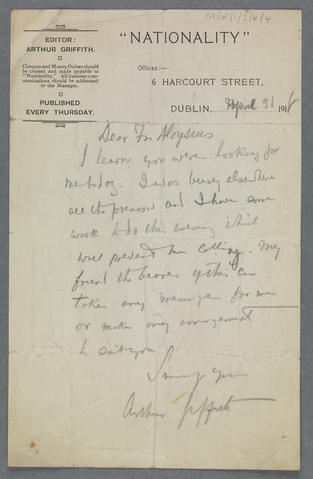 CA/IR/1/2/4/4
EDITOR:
ARTHUR GRIFFITH.
Cheques and Money Orders should
be crossed and made payable to
"Nationality." All business com-
munications should be addressed
to the Manager.
PUBLISHED
EVERY THURSDAY.
"NATIONALITY"
Offices:—
6 HARCOURT STREET,
DUBLIN, April 191
Dear Fr. Aloysius
I learn you were looking for
me today. I was busy elsewhere
all the forenoon and I have some
work to do this evening which
will prevent me calling. My
friend the bearer of this can
take any message for me
or make any arrangement
to suit you
Sincerely yours
Arthur Griffith